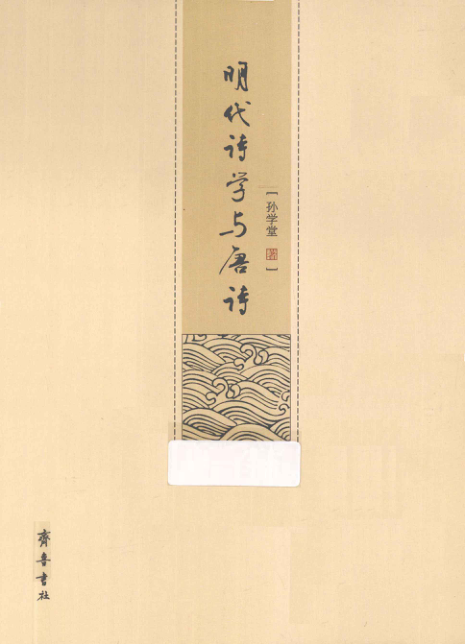 明代诗学与唐诗
[孙学堂 著]
齊鲁書社